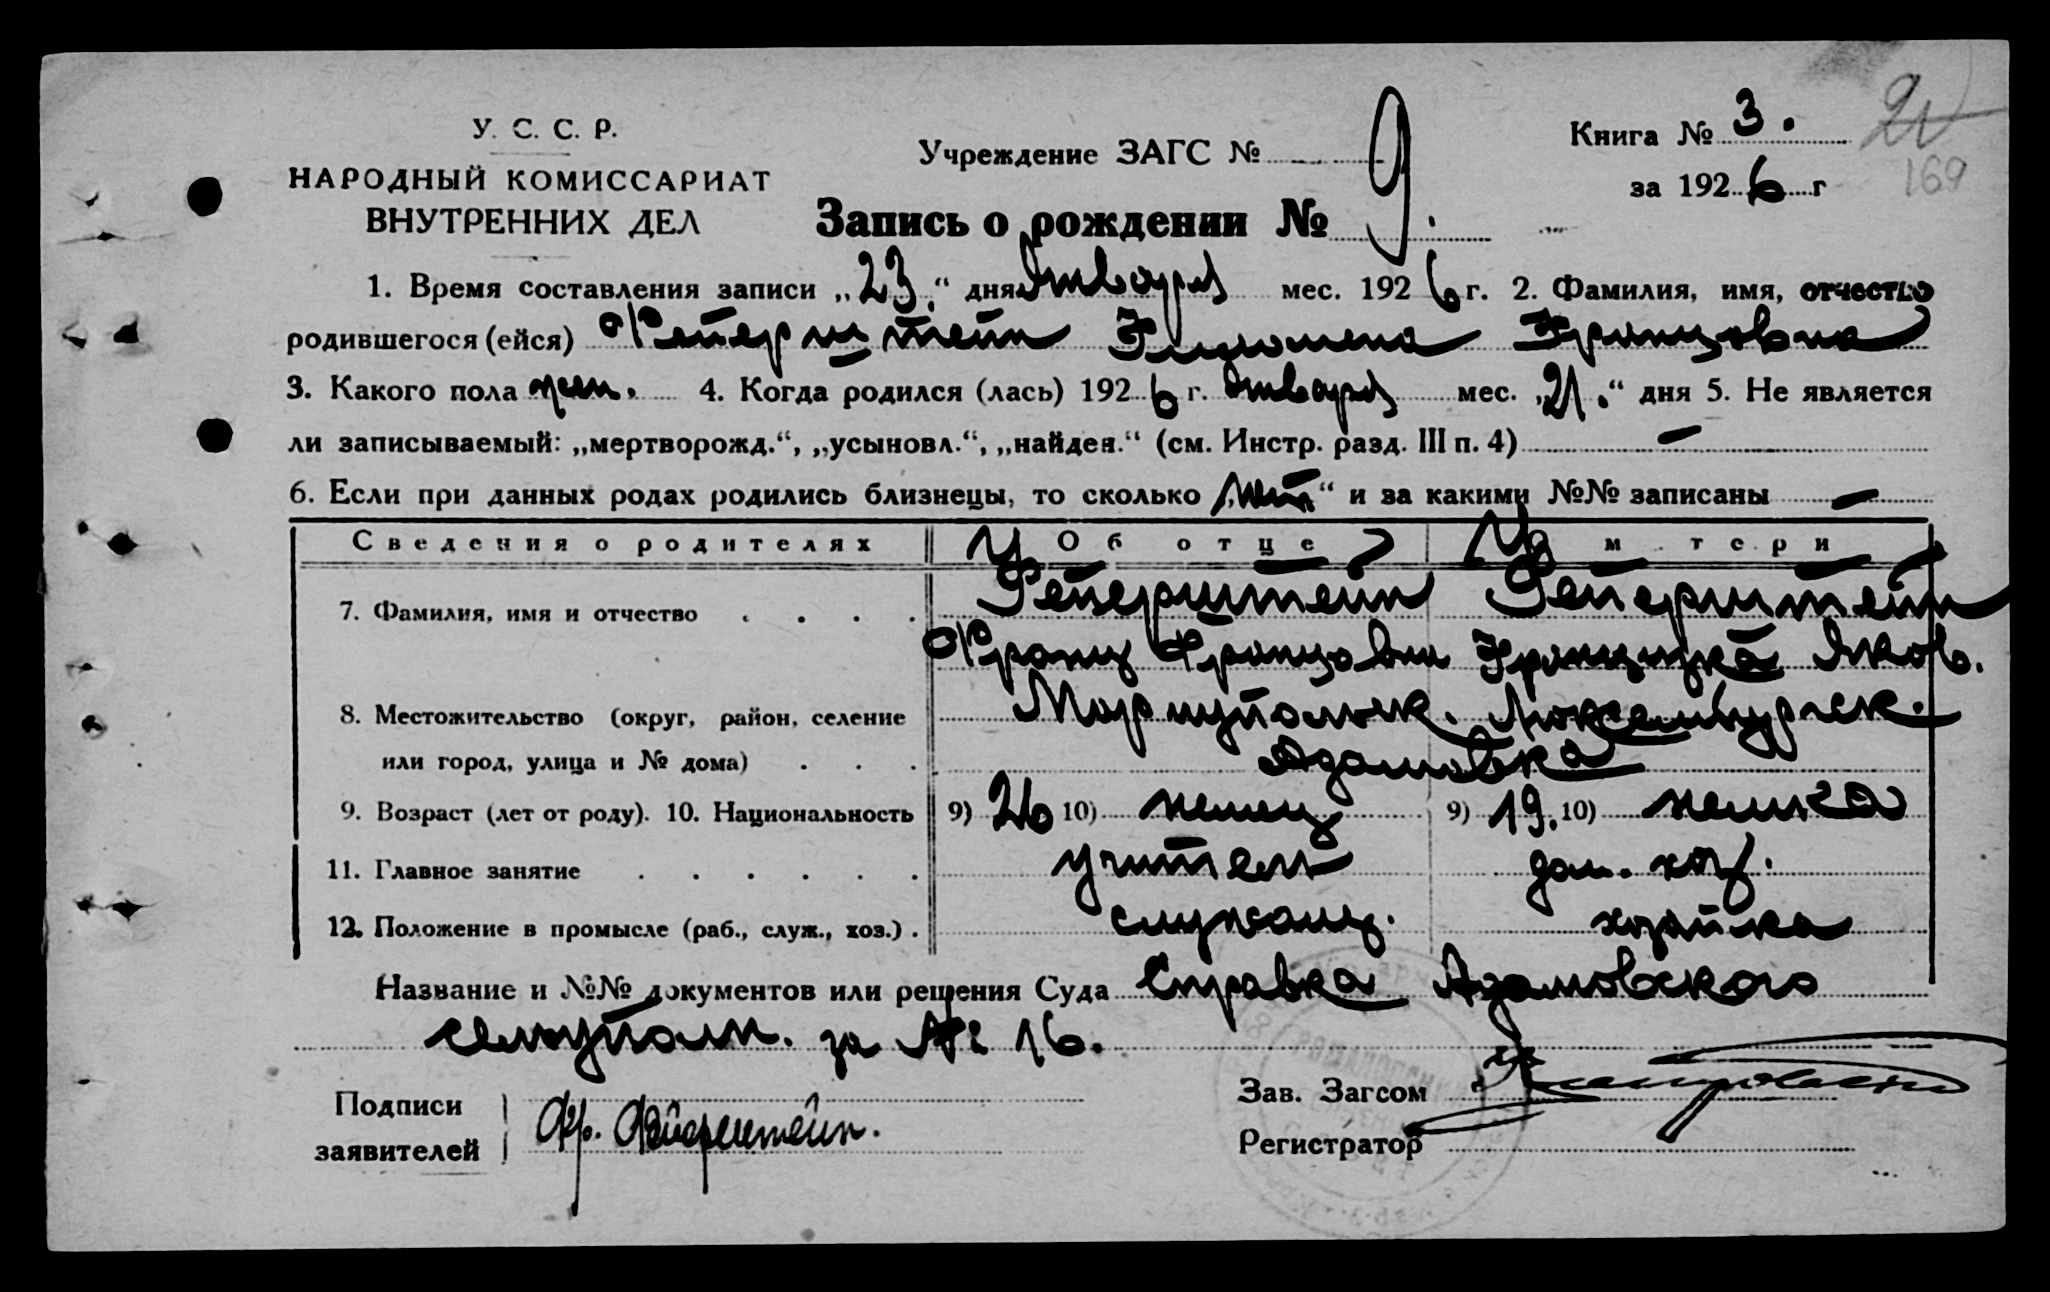 У. С. С. Р.
НАРОДНЫЙ КОМИССАРИАТ
ВНУТРЕННИХ ДЕЛ
Учреждение ЗАГС №
Запись о рождении № 9.
Книга № 3.
за 1926 г
169
1. Время составления записи „23.“ дня Января мес. 1926 г. 2. Фамилия, имя, отчество
родившегося (ейся) Фейерштейн Филомена Францовна
3. Какого пола жен. 4. Когда родился (лась) 1926 г. января мес. „21.“ дня 5. Не является
ли записываемый: „мертворожд.“, „усыновл.“, „найден.“ (см. Инстр. разд. III п. 4) —
6. Если при данных родах родились близнецы, то сколько „нет“ и за какими №№ записаны —
Сведения о родителях Об отце О м тери
7. Фамилия, имя и отчество . . . . Фейерштейн Фейерштейн
Франц Францови Француска Яков.
8. Местожительство (округ, район, селение Мариупольск. Люксембургск.
или город, улица и № дома) . . . Адамовка
9. Возраст (лет от роду). 10. Национальность 9) 26 10) немец 9) 19. 10) немка
11. Главное занятие . . . . . . учитель дом. хоз.
12. Положение в промысле (раб., служ., хоз.) . служащ. хозяйка
Название и №№ документов или решения Суда Справка Адамовского
сельуполн. за № 16.
Подписи
заявителей
Фр. Фейерштейн.
Зав. Загсом
Регистратор